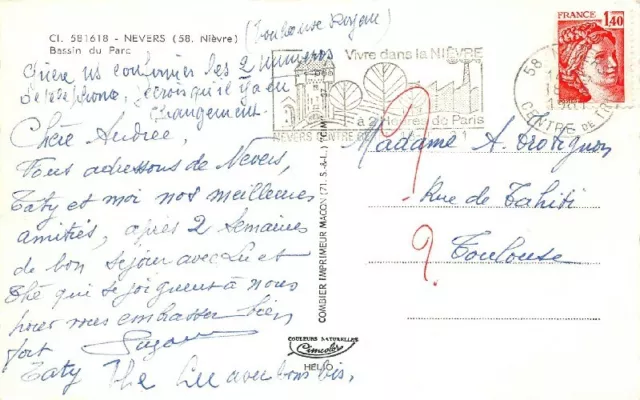 Cl. 581618 - NEVERS (58. Nièvre)
Bassin du Parc
(Toulouse
les 2 numéros
de telephone, je crois qu'il y a eu
changement.
Chère Andrée,
Vous adressons de Nevers,
Taty et moi nos meilleures
amitiés, après 2 Semaines
de bon Séjour avec Lu et
Thé qui se joignent à nous
pour vous embrasser bien
fort
Taty The Lu avec bons bis,
COMBIER IMPRIMEUR MACON (71. S.-&-L.)
COULEURS NATURELLES
Cimcolor
HELIO
Vivre dans la NIÈVRE
à 2 Heures de Paris
NEVERS
FRANCE
1,40
58
CENTRE DE TRI
?
?
Madame A
Rue de Tahiti
Toulouse